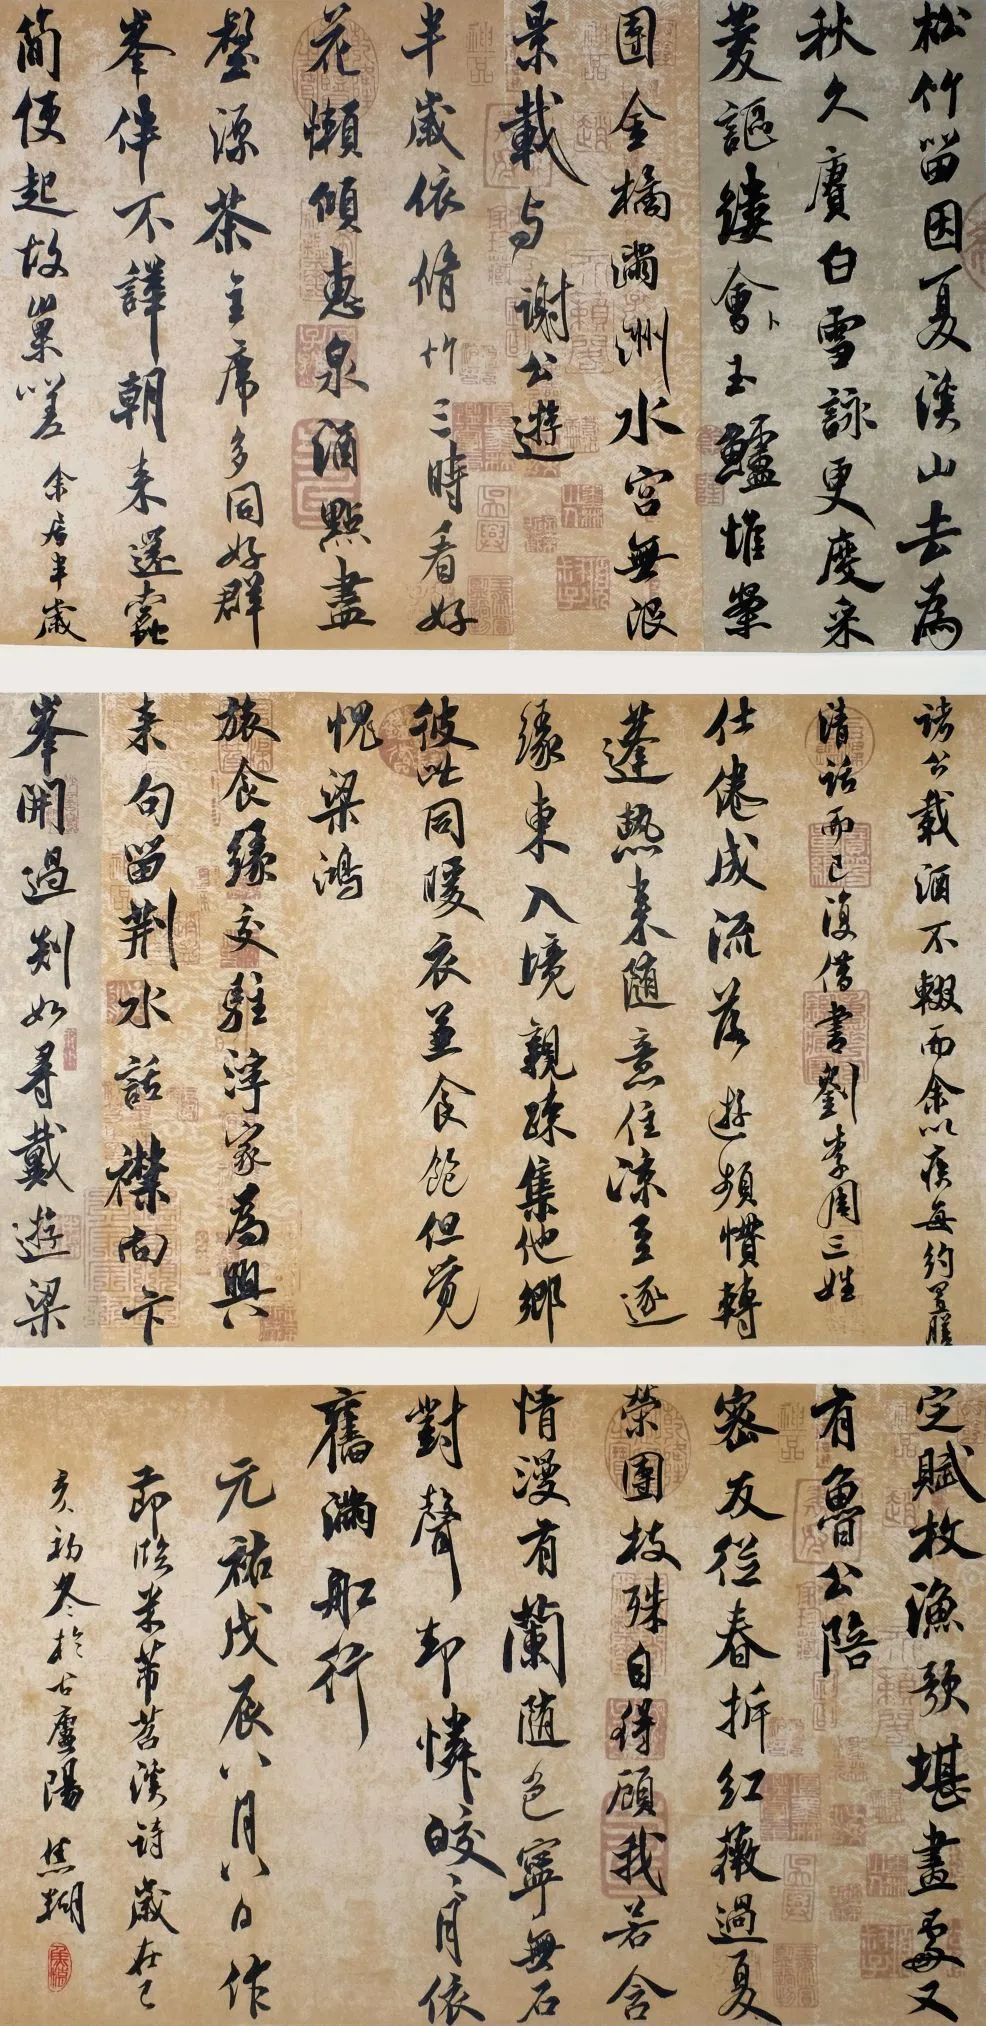 松竹留因夏溪山去為
秋久賡白雪詠更度采
菱謳縷會卜玉鱸堆案
團金橘滿洲水宮無限
景載与謝公遊
半歲依脩竹三時看好
花懶傾惠泉酒點盡
壑源茶主席多同好群
峯伴不譁朝来還蠹
簡便起故巢嗟余居半歲
諸公載酒不輟而余以疾每約置膳
清話而已復借書劉李周三姓
仕倦成流落遊頻慣轉
蓬熱来随意住涼至逐
緣東入境親疎集他鄉
彼此同暖衣並食飽但覺
愧梁鴻
旅食緣交駐浮家為興
来句留荆水話襟向卞
峯開過剡如尋戴遊梁
定賦枚漁歌堪畫處又
有魯公陪
密友從春拆紅薇過夏
榮團枝殊自得顧我若含
情漫有蘭随色寧無石
對聲却憐皎々月依
舊滿舡行
元祐戊辰八月八日作
節臨米芾苕溪詩歲在己
亥初冬於古廬陽